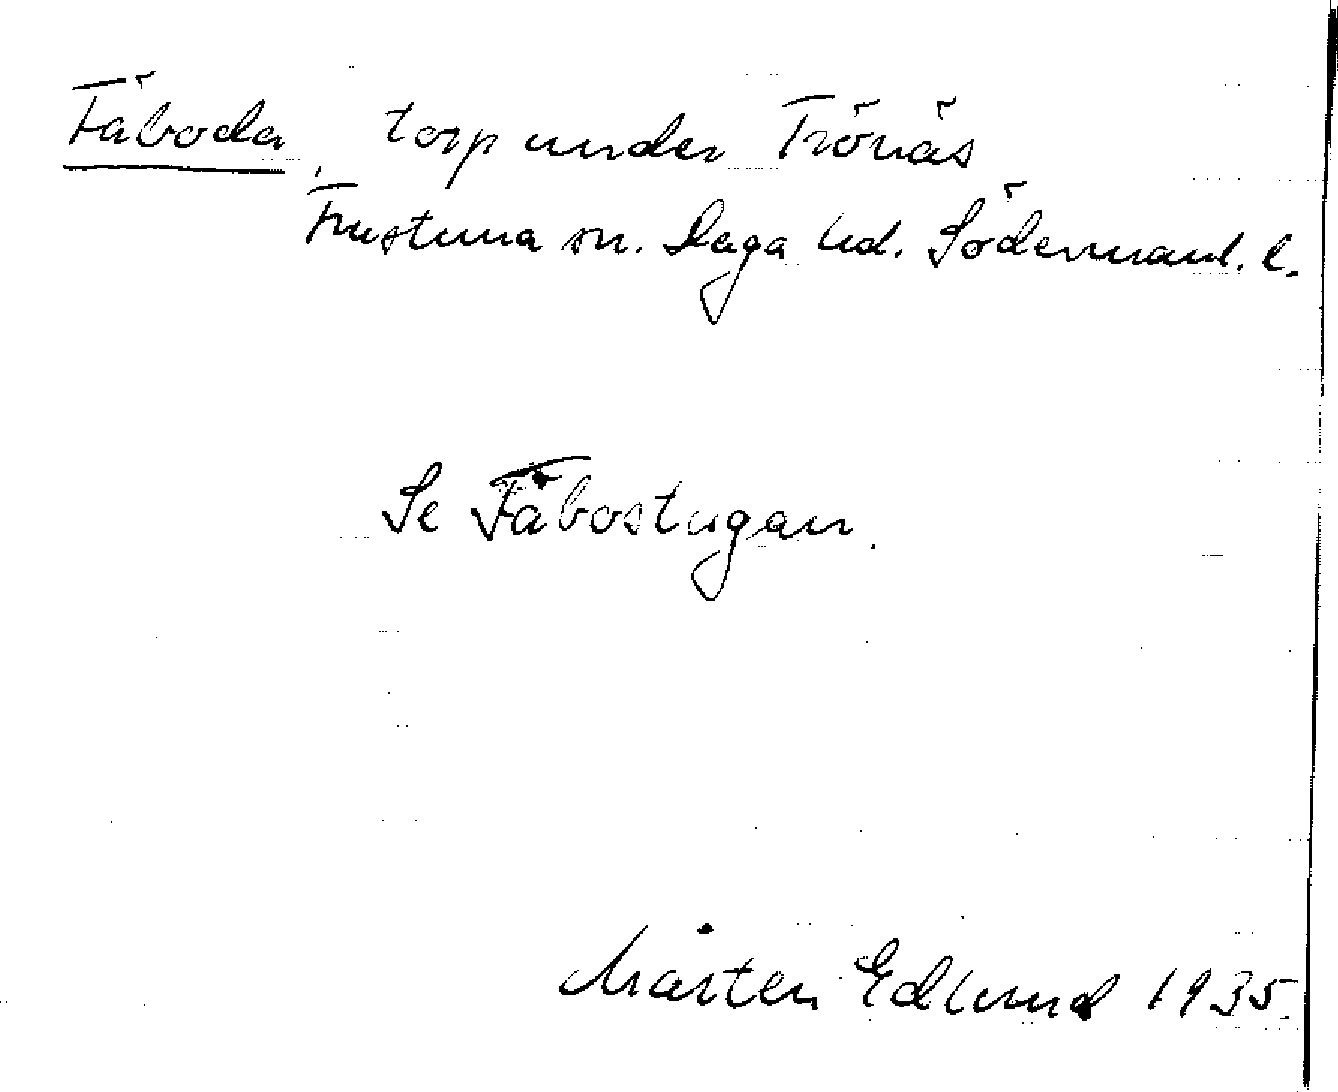 Fäboda, torp under Trönäs
Frustuna sn. Daga hd. Södermanl. l.
Se Fäbostugan.
Mårten Edlund 1935.